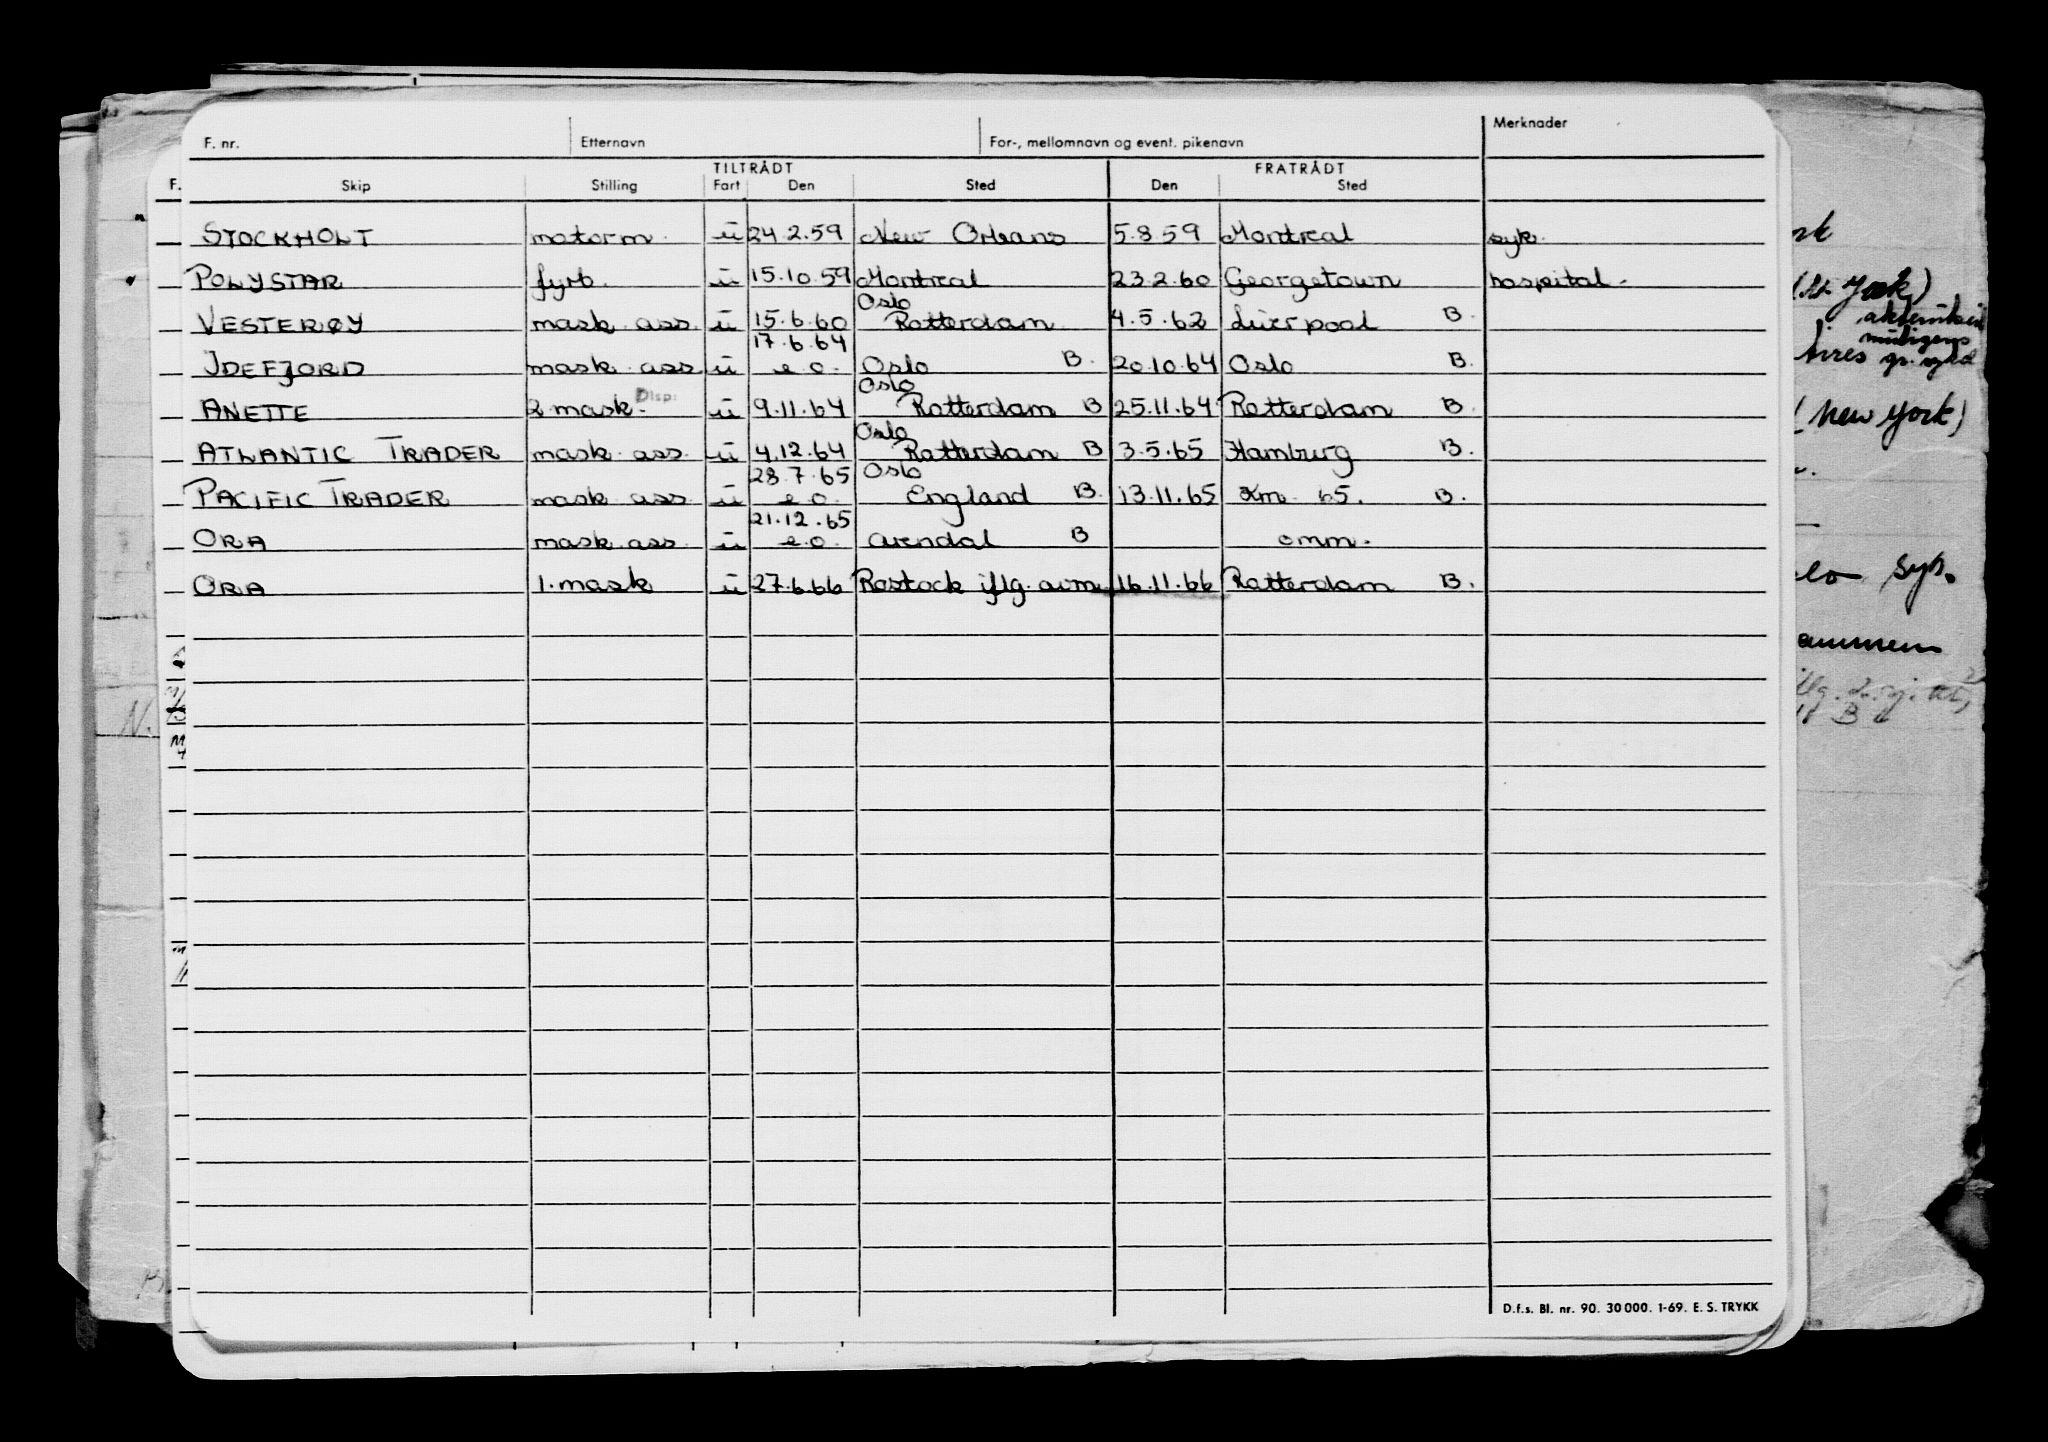 F. nr. Etternavn For-, mellomnavn og event. pikenavn Merknader
TILTRÅDT FRATRÅDT
F. Skip Stilling Fart Den Sted Den Sted
STOCKHOLT motorm. ū 24.2.59 New Orleans 5.8.59 Montreal syk.
POLYSTAR fyrb. ū 15.10.59 Montreal 23.2.60 Georgetown hospital.
Oslo
VESTERØY mask. ass. ū 15.6.60 Rotterdam 4.5.62 Liverpool B.
17.6.64
IDEFJORD mask. ass. ū e.o. Oslo B. 20.10.64 Oslo B.
Oslo
ANETTE 2. mask. Disp: ū 9.11.64 Rotterdam B 25.11.64 Rotterdam B.
Oslo
ATLANTIC TRADER mask. ass. ū 4.12.64 Rotterdam B 3.5.65 Hamburg B.
28.7.65 Oslo
PACIFIC TRADER mask. ass. ū e.o. England B. 13.11.65 Km. 65. B.
21.12.65
ORA mask. ass. ū e.o. Arendal B omm.
ORA 1. mask ū 27.6.66 Rostock iflg. avm. 16.11.66 Rotterdam B.
York)
Aires gr. sykd
(New York)
syk.
N.
B
D.f.s. Bl. nr. 90. 30 000. 1-69. E. S. TRYKK